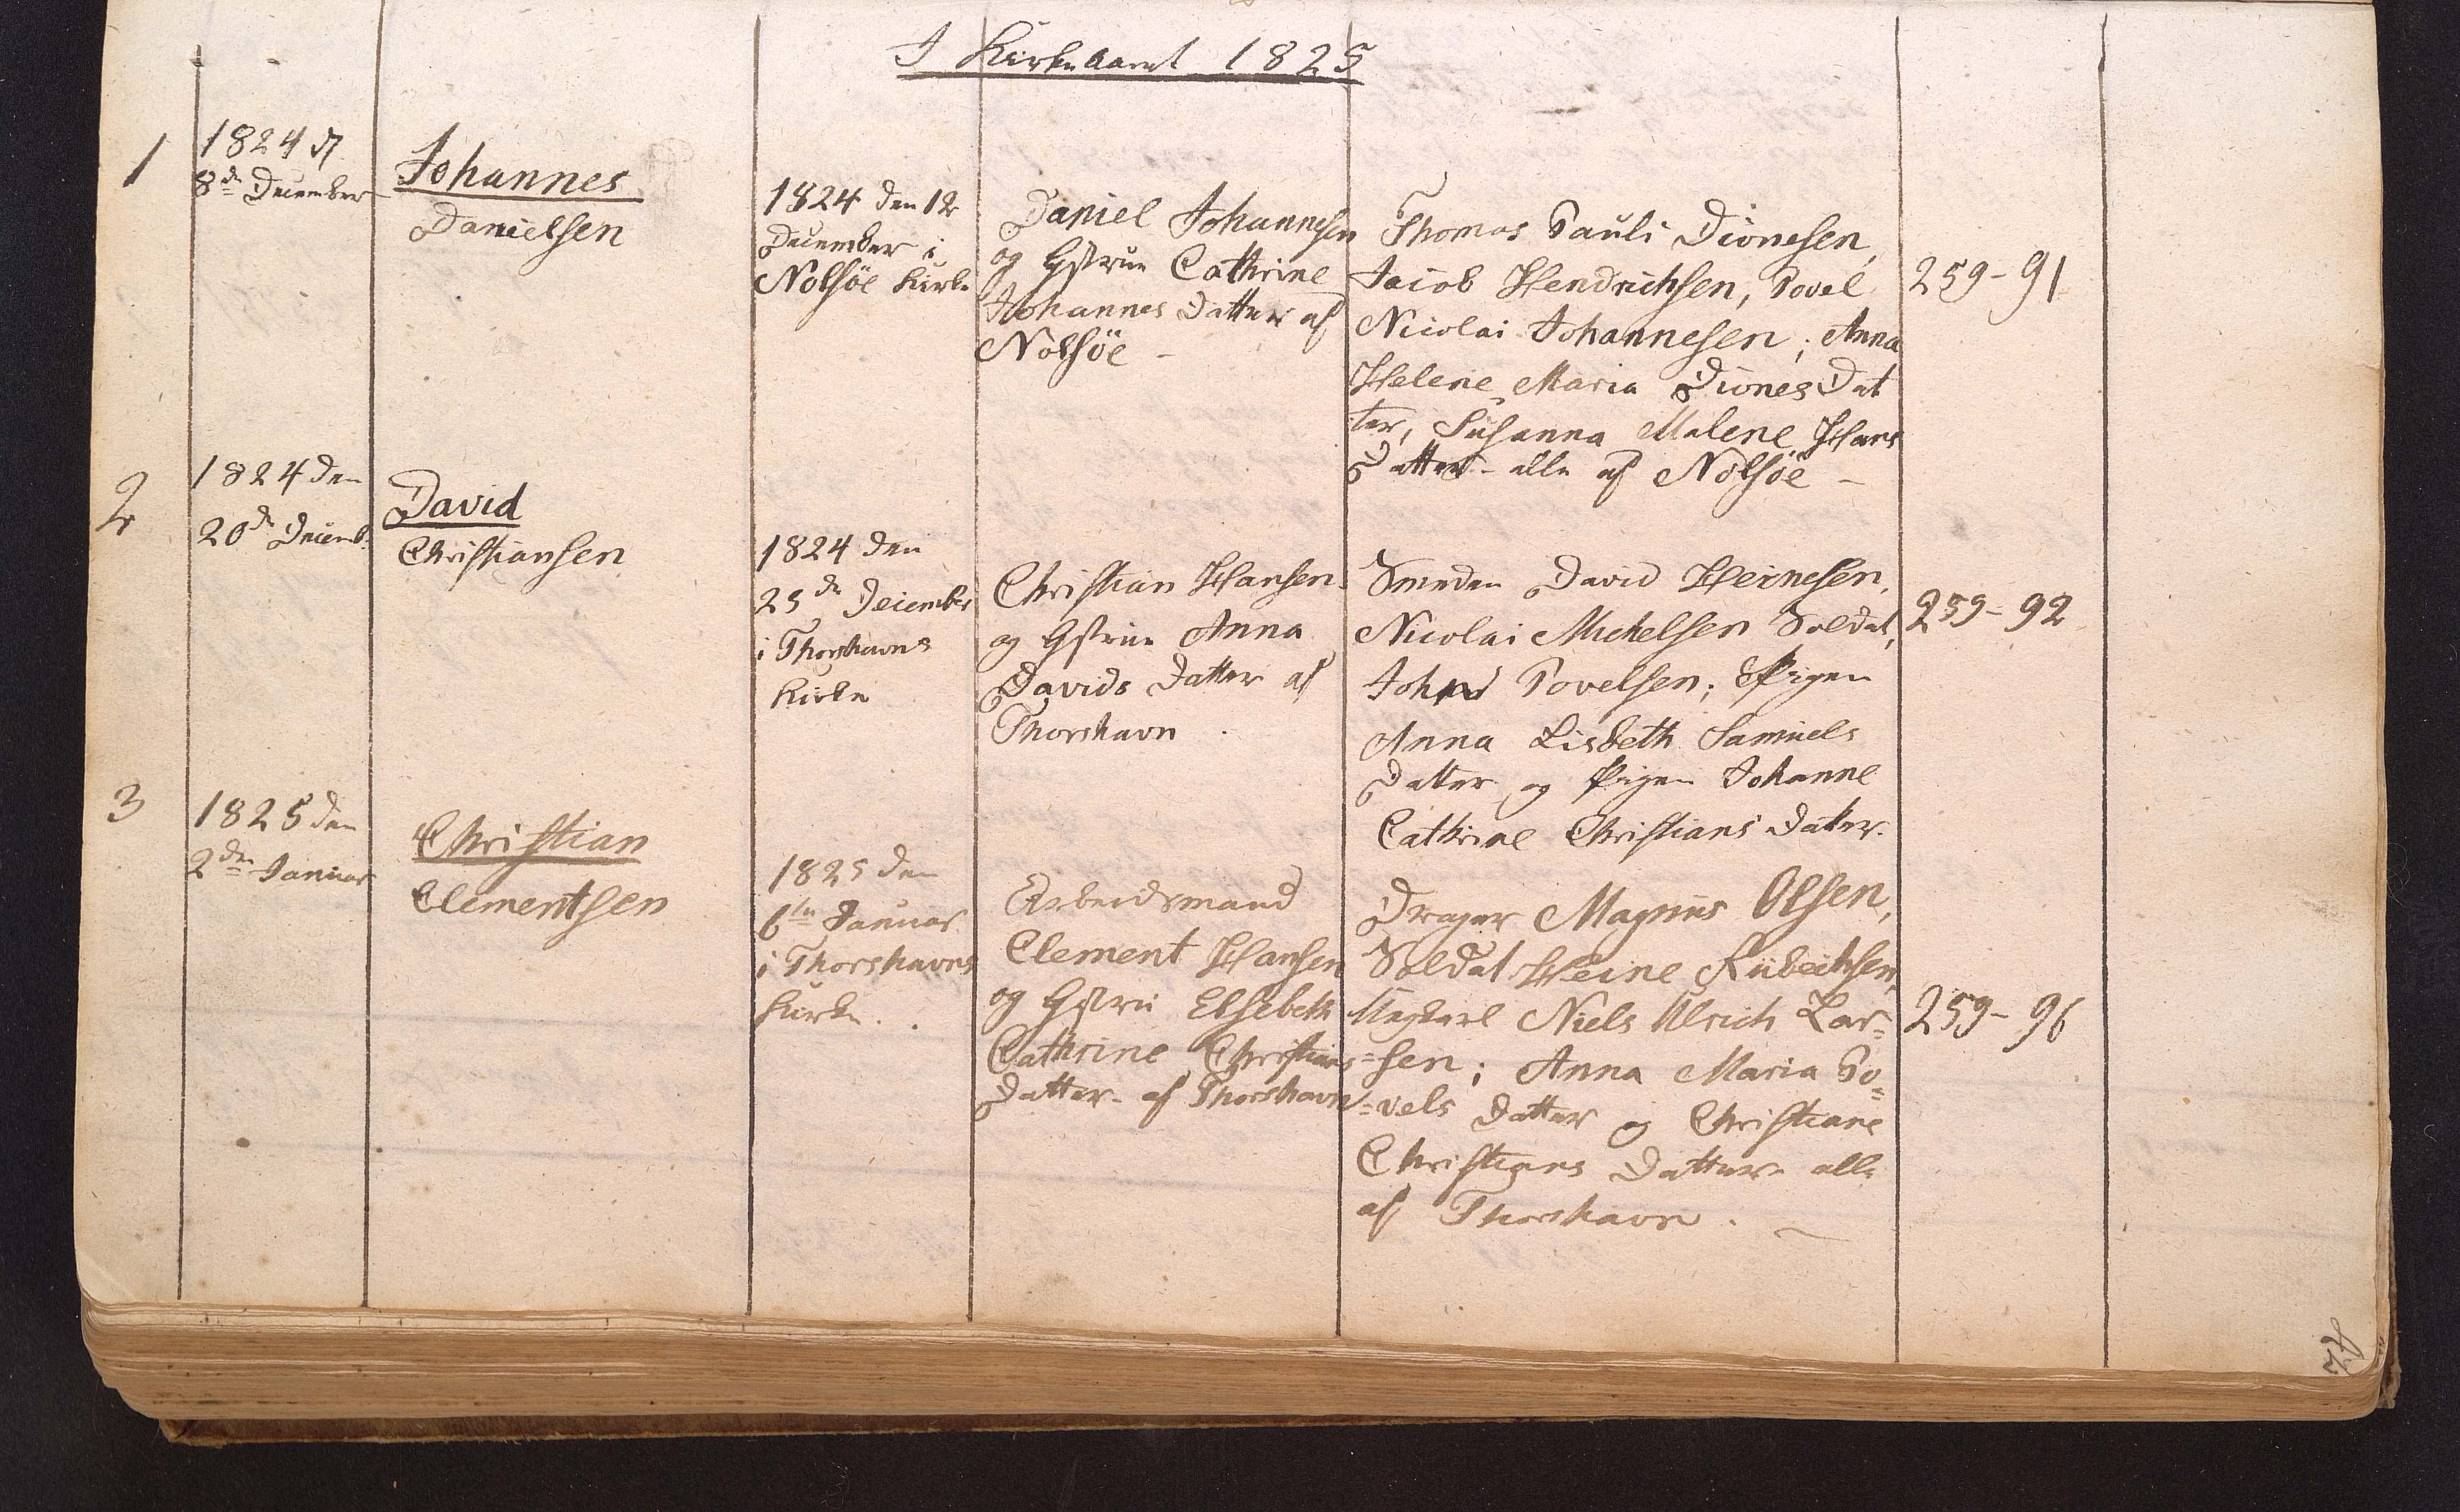 I Kirkeaaret 1825
1
1824 d
8de December
Johannes
Danielsen
1824 den 12
December i
Nolsöe Kirke
Daniel Johannesen
og Hstrue Cathrine
Johannes Datter af
Nolsöe -
Thomas Pauli Dionesen,
Jacob Hendrichsen, Povel
Nicolai Johannesen; Anna
Helene Maria Diones Dat
ter, Susanna Malene Hans
Datter - alle af Nolsöe -
259-91
2
1824 den
20de Decemb.
David
Christiansen
1824 den
25de December
i Thorshavns
Kirke
Christian Hansen
og Hstrue Anna
Davids Datter af
Thorshavn.
Smeden David Heinesen,
Nicolai Michelsen Soldat,
Povelsen; Pigen
Anna Lisbeth Samuels
Datter og Pigen Johanne
Cathrine Christians Datter.
259-92
3
1825 den
2den Januar
Christian
Clementsen
1825 den
6te Januar
i Thorshavns
Kirke..
Arbeidsmand
Clement Hansen
og Hstrue Elsebeth
Cathrine Christians
Datter - af Thorshavn
Drager Magnus Olsen,
Soldat Heine
Ungkarl Niels Ulrich Lar=
=sen; Anna Maria Po=
=vels Datter og Christiane
Christians Datter - alle
af Thorshavn. -
259-96